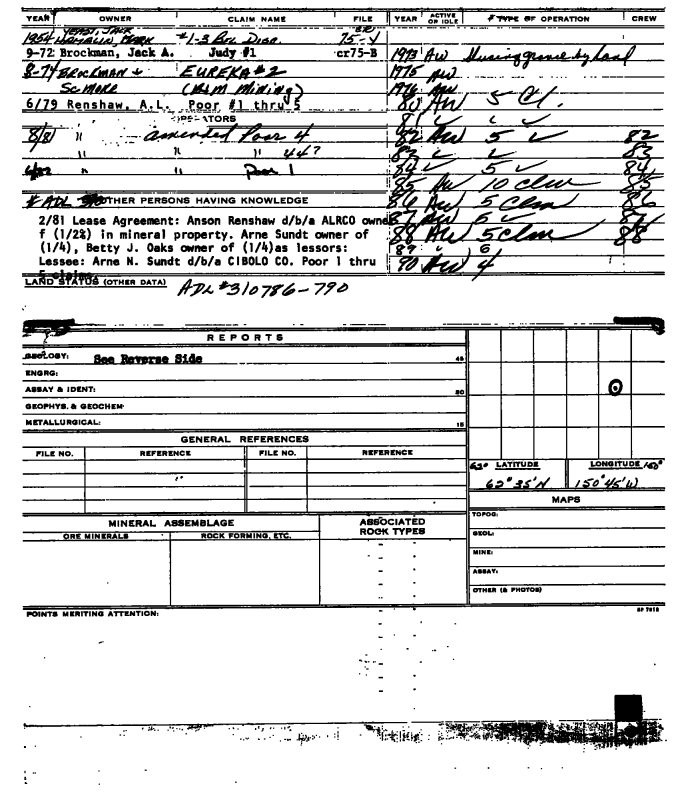 YEAR OWNER CLAIM NAME FILE YEAR ACTIVE OR IDLE # TYPE OF OPERATION CREW
YERST, JACK
1954 HAMBLIN, MARK #1-3 BIG DIGR. 75-4
9-72 Brockman, Jack A. Judy #1 cr75-B 1973 AW
8-74 BROCKMAN & EUREKA #2 1975 AW
SCMORE (B&M Mining) 1976 AW
6/79 Renshaw, A.L. Poor #1 thru 5 80 AW 5 Cl.
OPERATORS 81 ✓ ✓ ✓
8/81 " amended Poor 4 82 AW 5 ✓ 82
" " " 4 4? 83 ✓ ✓ 83
" " Poor 1 84 ✓ 5 ✓ 84
85 AW 10 clm 85
OTHER PERSONS HAVING KNOWLEDGE 86 AW 5 Clm 86
2/81 Lease Agreement: Anson Renshaw d/b/a ALRCO owne 87 AW 5 ✓ 87
f (1/2%) in mineral property. Arne Sundt owner of 88 AW 5 clm 88
(1/4), Betty J. Oaks owner of (1/4)as lessors: 89 ✓ 6
Lessee: Arne N. Sundt d/b/a CIBOLO CO. Poor 1 thru 90 AW 4
5 claims
LAND STATUS (OTHER DATA) ADL #310786-790
REPORTS
GEOLOGY: See Reverse Side 45
ENGRG:
ASSAY & IDENT: 30
GEOPHYS. & GEOCHEM:
METALLURGICAL: 15
GENERAL REFERENCES
FILE NO. REFERENCE FILE NO. REFERENCE
63° LATITUDE LONGITUDE 150°
62°35'N 150°45'W
MAPS
MINERAL ASSEMBLAGE ASSOCIATED ROCK TYPES TOPOG:
ORE MINERALS ROCK FORMING, ETC. GEOL:
MINE:
ASSAY:
OTHER (& PHOTOS)
POINTS MERITING ATTENTION: SP 7618